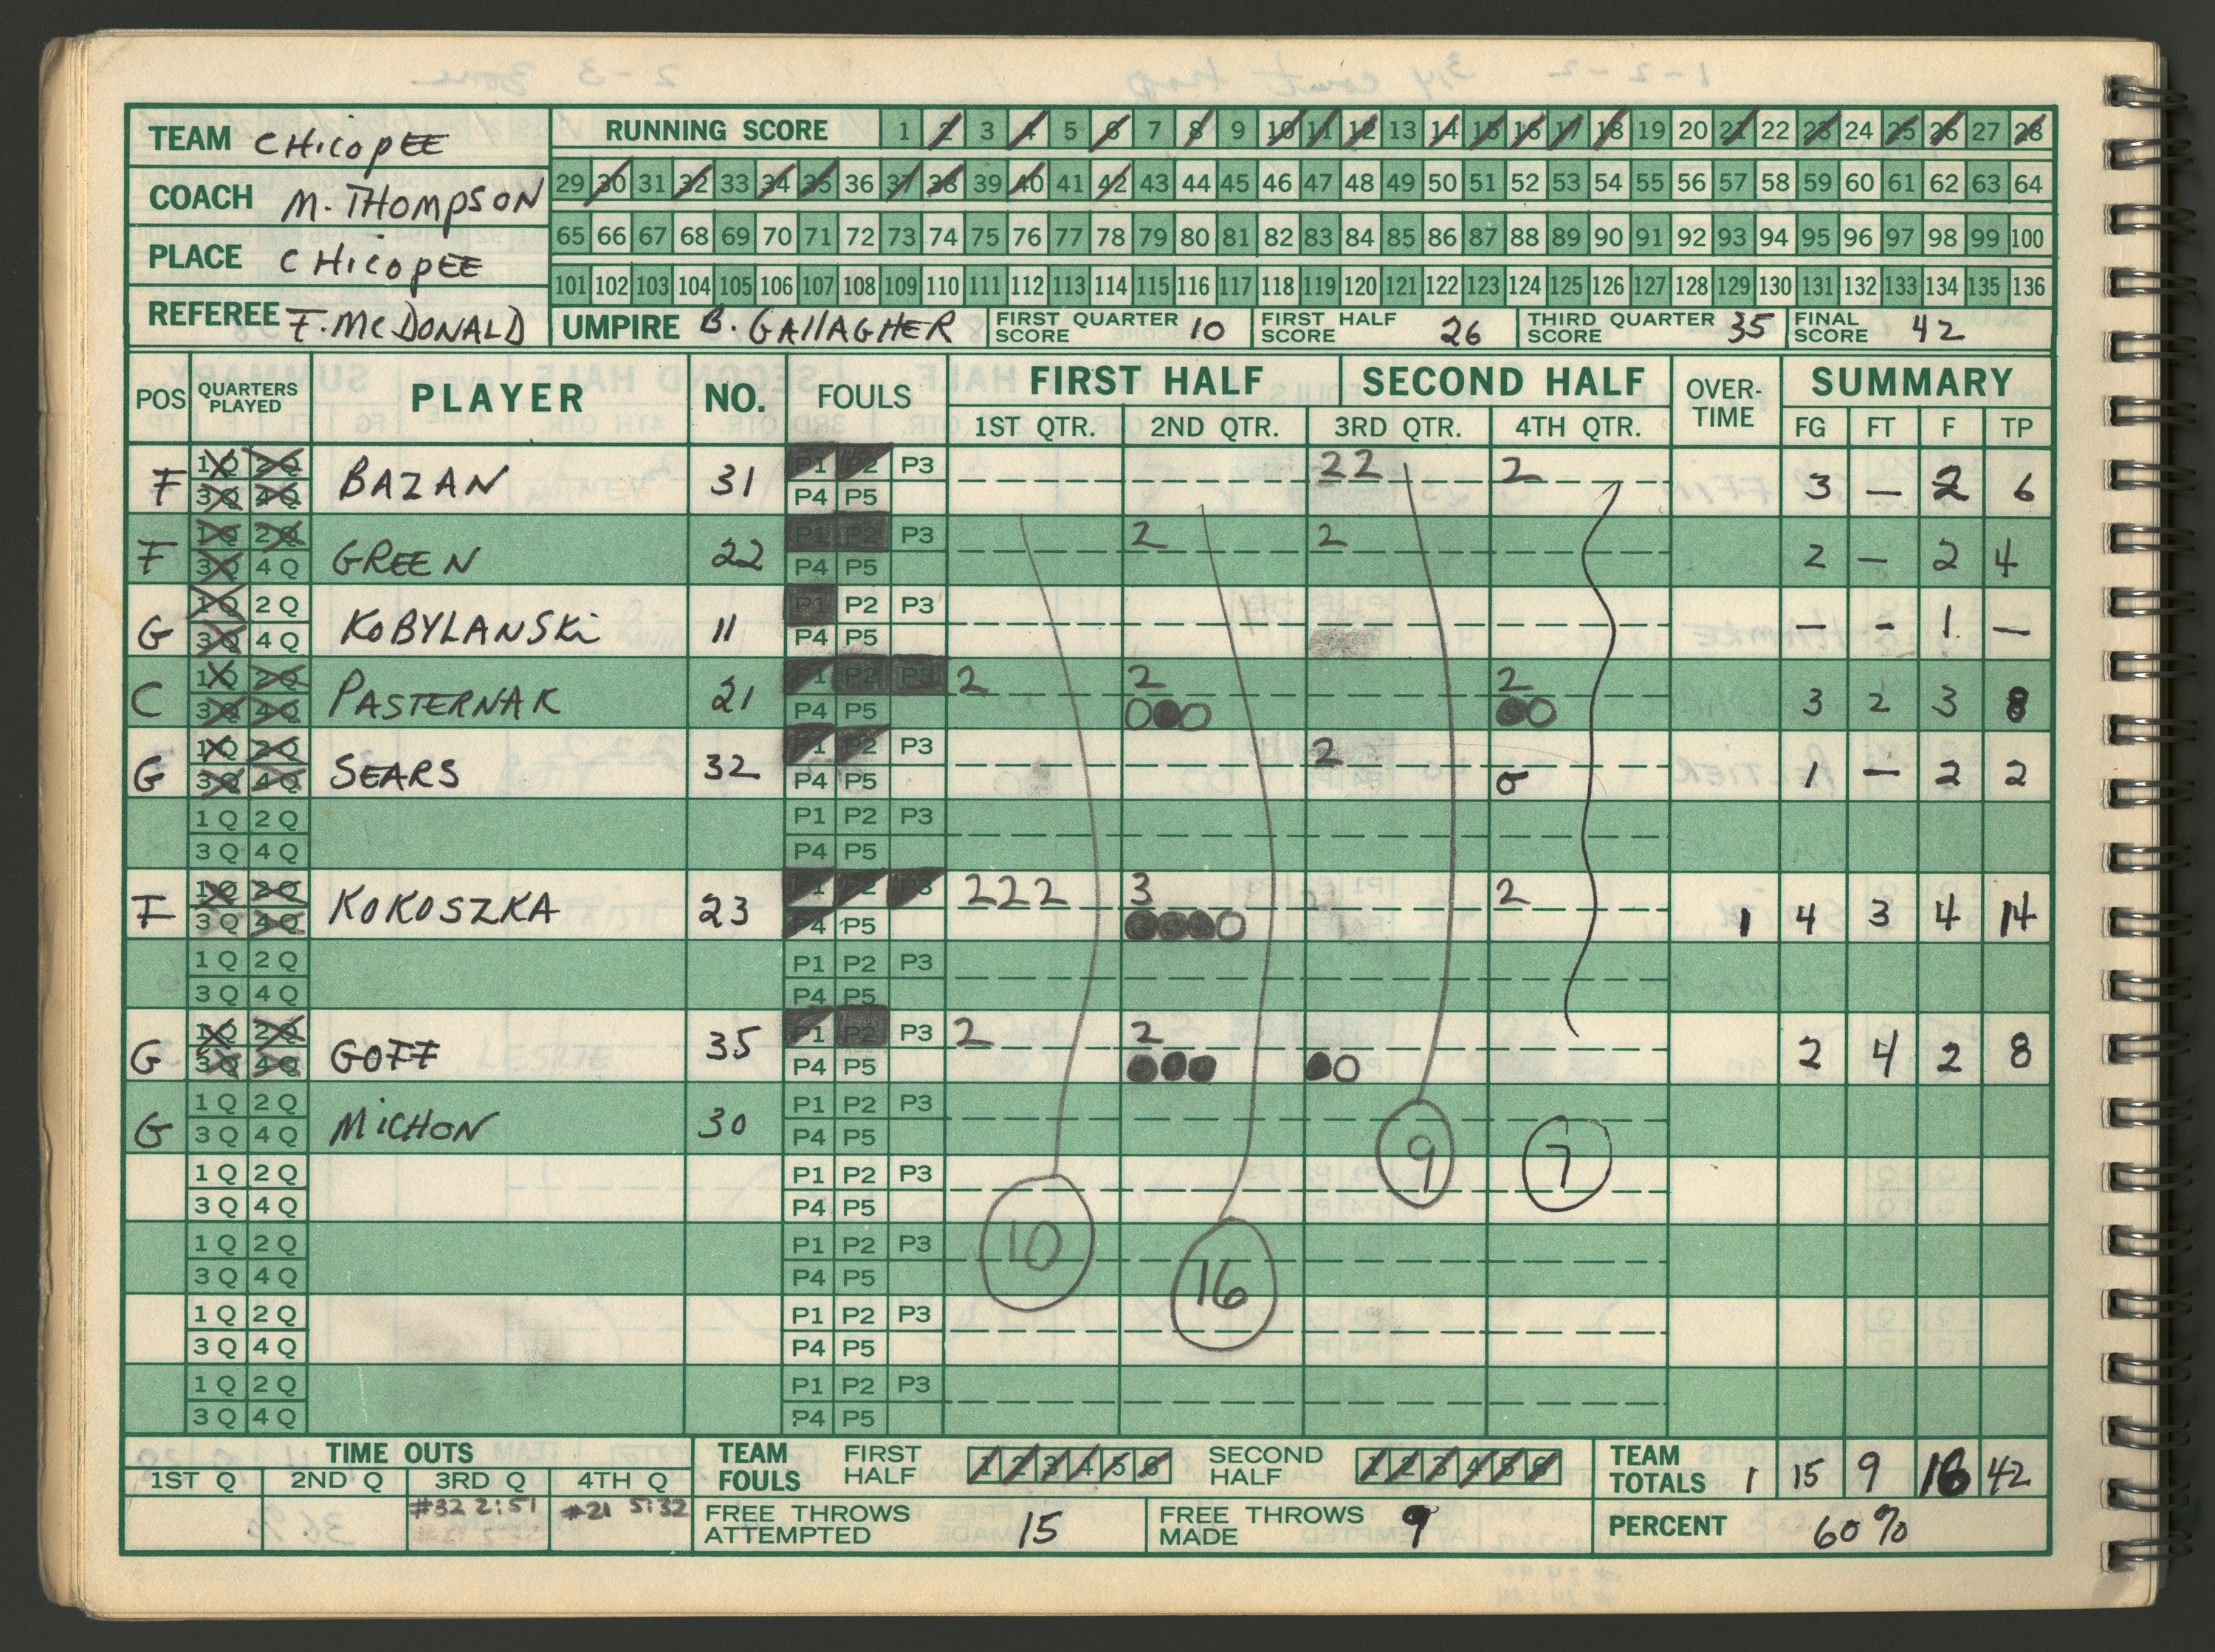 TEAM CHicopEE
COACH M. THOMPSON
PLACE CHicopEE
REFEREE F. McDONALD
RUNNING SCORE 1 2 3 4 5 6 7 8 9 10 11 12 13 14 15 16 17 18 19 20 21 22 23 24 25 26 27 28
29 30 31 32 33 34 35 36 37 38 39 40 41 42 43 44 45 46 47 48 49 50 51 52 53 54 55 56 57 58 59 60 61 62 63 64
65 66 67 68 69 70 71 72 73 74 75 76 77 78 79 80 81 82 83 84 85 86 87 88 89 90 91 92 93 94 95 96 97 98 99 100
101 102 103 104 105 106 107 108 109 110 111 112 113 114 115 116 117 118 119 120 121 122 123 124 125 126 127 128 129 130 131 132 133 134 135 136
UMPIRE B. GAllAGHER FIRST QUARTER SCORE 10 FIRST HALF SCORE 26 THIRD QUARTER SCORE 35 FINAL SCORE 42
POS QUARTERS PLAYED PLAYER NO. FOULS FIRST HALF SECOND HALF OVER-TIME SUMMARY
1ST QTR. 2ND QTR. 3RD QTR. 4TH QTR. FG FT F TP
F 1Q 2Q BAZAN 31 P1 P2 P3 22 2 3 — 2 6
3Q 4Q P4 P5
F 1Q 2Q GREEN 22 P1 P2 P3 2 2 2 — 2 4
3Q 4Q P4 P5
G 1Q 2Q KOBYLANSKi 11 P1 P2 P3 — - 1 —
3Q 4Q P4 P5
C 1Q 2Q PASTERNAK 21 P1 P2 P3 2 2 2 3 2 3 8
3Q 4Q P4 P5 O●O ●O
G 1Q 2Q SEARS 32 P1 P2 P3 2 1 — 2 2
3Q 4Q P4 P5 O
1Q 2Q P1 P2 P3
3Q 4Q P4 P5
F 1Q 2Q KOKOSZKA 23 P1 P2 P3 222 3 2 1 4 3 4 14
3Q 4Q P4 P5 ●●●O
1Q 2Q P1 P2 P3
3Q 4Q P4 P5
G 1Q 2Q GOFF 35 P1 P2 P3 2 2 2 4 2 8
3Q 4Q P4 P5 ●●● ●O
G 1Q 2Q MiCHON 30 P1 P2 P3
3Q 4Q P4 P5
9 7
1Q 2Q P1 P2 P3
3Q 4Q P4 P5
10 16
1Q 2Q P1 P2 P3
3Q 4Q P4 P5
1Q 2Q P1 P2 P3
3Q 4Q P4 P5
1Q 2Q P1 P2 P3
3Q 4Q P4 P5
TIME OUTS
1ST Q 2ND Q 3RD Q 4TH Q
#32 2:51 #21 5:32
TEAM FOULS FIRST HALF 1 2 3 4 5 6 SECOND HALF 1 2 3 4 5 6
TEAM TOTALS 1 15 9 16 42
FREE THROWS ATTEMPTED 15 FREE THROWS MADE 9 PERCENT 60%